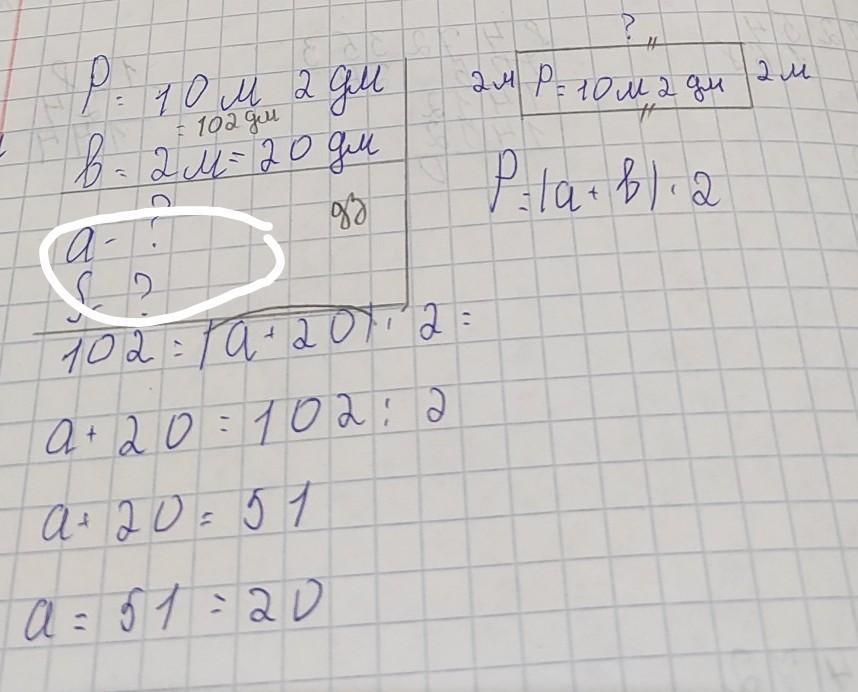 P = 10 м 2 дм
= 102 дм
в = 2 м = 20 дм
а - ?
S - ?
102 = (а + 20) · 2 =
а + 20 = 102 : 2
а + 20 = 51
а = 51 = 20
?
2м P = 10 м 2 дм 2 м
P = (а + в) · 2